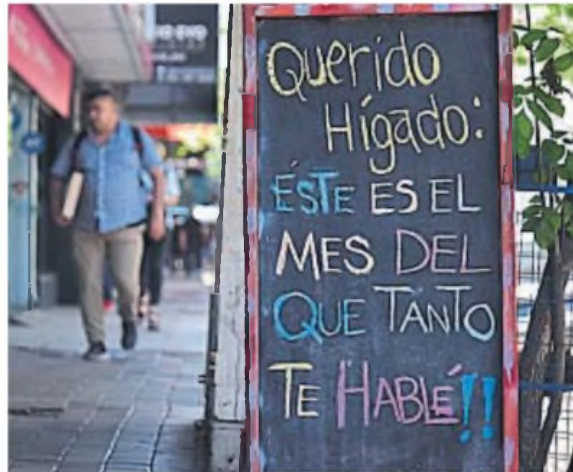 Querido
Hígado:
ÉSTE ES EL
MES DEL
QUE TANTO
TE HABLÉ!!